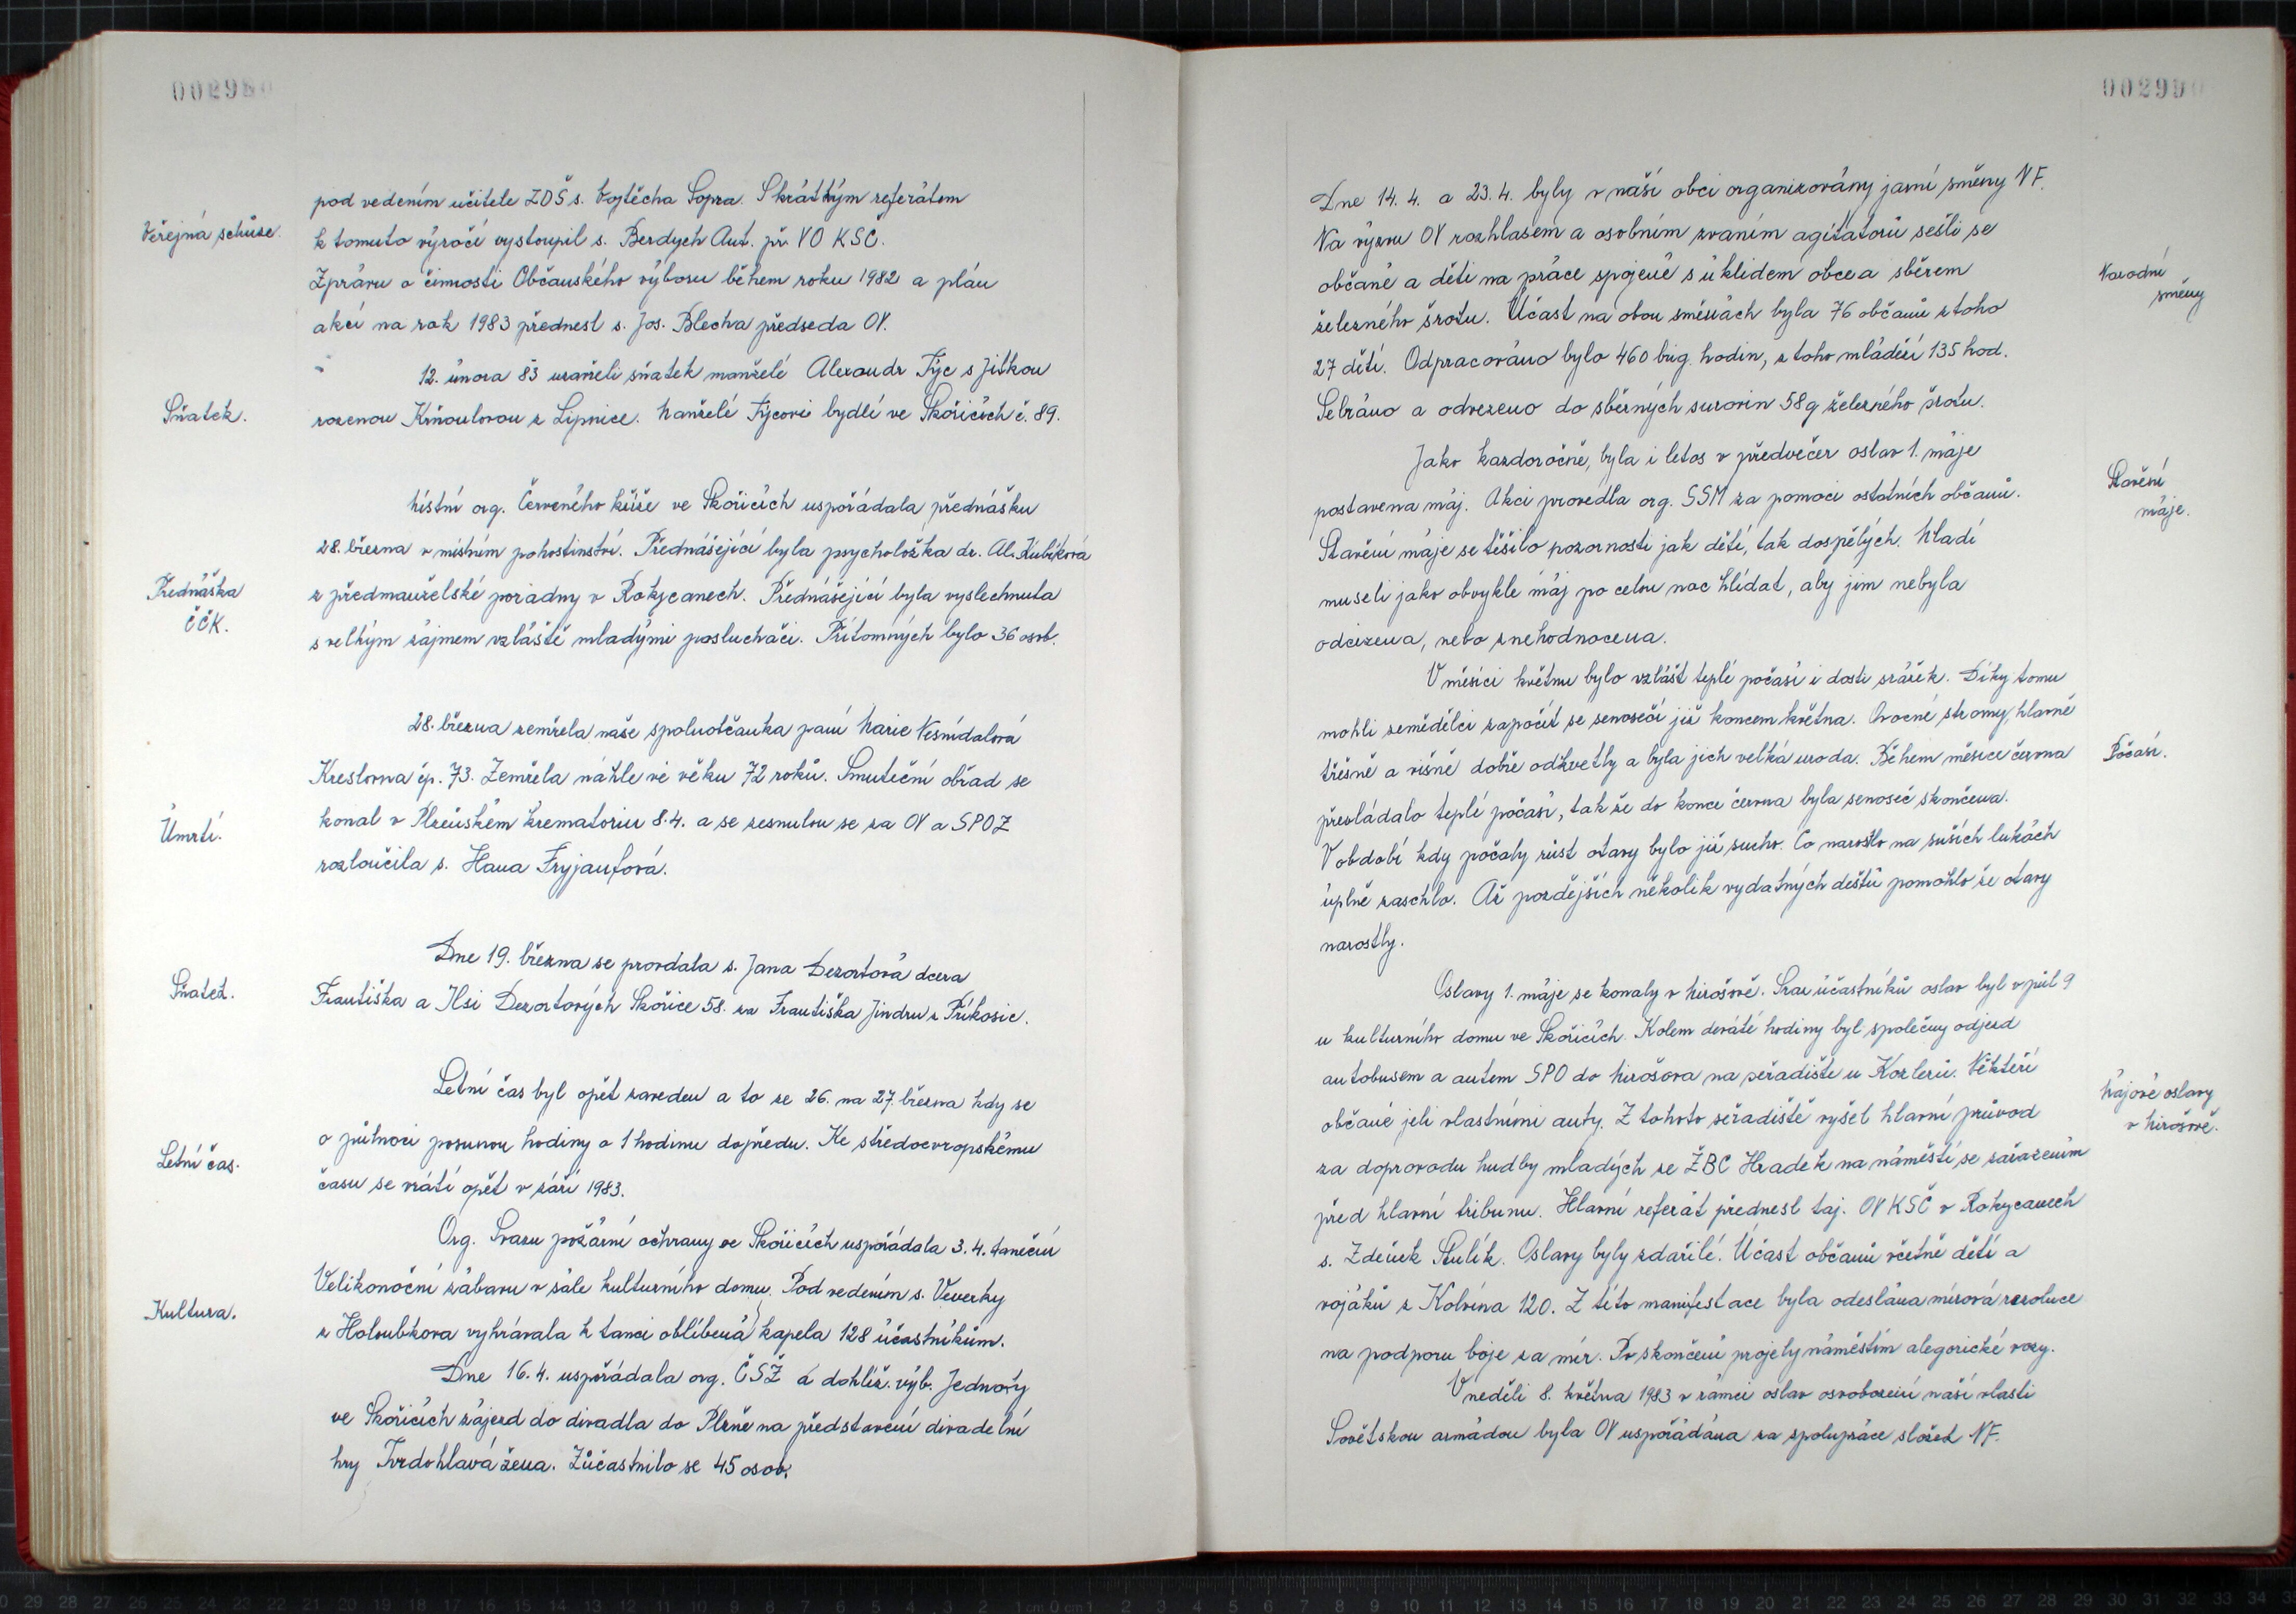 00298
Veřejná schůze.
pod vedením učitele ZDŠ s. Vojtěcha Sopra. S krátkým referátem
k tomuto výročí vystoupil s. Berdych Ant. př. VO KSČ.
Zprávu o činnosti Občanského výboru během roku 1982 a plán
akcí na rok 1983 přednesl s. Jos. Blecha předseda OV.
12. února 83 uzavřeli sňatek manželé Alexandr Týc s Jitkou
Sňatek.
rozenou Krňoulovou z Lipnice. Manželé Týcovi bydlí ve Skořicích č. 89.
Místní org. Červeného kříže ve Skořicích uspořádala přednášku
28. března v místním pohostinství. Přednášející byla psycholožka dr. Al. Kubíková
Přednáška
ČČK.
z předmanželské poradny v Rokycanech. Přednášející byla vyslechnuta
s velkým zájmem vzláště mladými posluchači. Přítomných bylo 36 osob.
28. března zemřela naše spoluobčanka paní Marie Nesnídalová
Kreslovna čp. 73. Zemřela náhle ve věku 72 roků. Smuteční obřad se
Úmrtí.
konal v Plzeňském krematoriu 8.4. a se zesnulou se za OV a SPOZ
rozloučila s. Hana Fryjaufová.
Dne 19. března se provdala s. Jana Dezortová dcera
Sňatek.
Františka a Ilsi Dezortových Skořice 58. za Františka Jindru z Příkosic.
Letní čas byl opět zaveden a to ze 26. na 27. března kdy se
Letní čas.
o půlnoci posunou hodiny o 1 hodinu dopředu. Ke středoevropskému
času se vrátí opět v září 1983.
Org. Svazu požární ochrany ve Skořicích uspořádala 3.4. taneční
Kultura.
Velikonoční zábavu v sále kulturního domu. Pod vedením s. Veverky
z Holoubkova vyhrávala k tanci oblíbená kapela 128 účastníkům.
Dne 16.4. uspořádala org. ČSŽ a dohlíž. výb. Jednoty
ve Skořicích zájezd do divadla do Plzně na představení divadelní
hry Tvrdohlavá žena. Zůčastnilo se 45 osob.
00299
Dne 14.4. a 23.4. byly v naší obci organizovány jarní směny NF.
Na výzvu OV rozhlasem a osobním zvaním agitátorů sešli se
občané a děti na práce spojené s úklidem obce a sběrem
Národní
směny
železného šrotu. Účast na obou směnách byla 76 občanů z toho
27 dětí. Odpracováno bylo 460 brig. hodin, z toho mládeží 135 hod.
Sebráno a odvezeno do sběrných surovin 58q železného šrotu.
Jako každoročně, byla i letos v předvečer oslav 1. máje
Stavění
máje.
postavena máj. Akci provedla org. SSM za pomoci ostatních občanů.
Stavění máje se těšilo pozornosti jak dětí, tak dospělých. Mladí
museli jako obvykle máj po celou noc hlídat, aby jim nebyla
odcizena, nebo znehodnocena.
V měsíci květnu bylo vzlášt teplé počasí i dosti srážek. Díky tomu
mohli zemědělci započít se senosečí již koncem května. Ovocné stromy, hlavně
Počasí.
třešně a višně dobře odkvetly a byla jich velká uroda. Během měsíce června
převládalo teplé počasí, tak že do konce června byla senoseč skončena.
V období kdy počaly růst otavy bylo již sucho. Co narostlo na sušších lukách
úplně zaschlo. Až pozdějších několik vydatných deštů pomohlo že otavy
narostly.
Oslavy 1. máje se konaly v Mirošově. Sraz účastníků oslav byl v půl 9
u kulturního domu ve Skořicích. Kolem deváté hodiny byl společný odjezd
autobusem a autem SPO do Mirošova na seřadiště u Kozlerů. Někteří
Májové oslavy
v Mirošově.
občané jeli vlastními auty. Z tohoto seřadiště vyšel hlavní průvod
za doprovodu hudby mladých ze ŽBC Hradek na náměstí se zařazením
před hlavní tribunu. Hlavní referát přednesl taj. OV KSČ v Rokycanech
s. Zdeněk Stulík. Oslavy byly zdařilé. Účast občanů včetně dětí a
vojáků z Kolvína 120. Z této manifestace byla odeslána mírová rezoluce
na podporu boje za mír. Po skončení projely náměstím alegorické vozy.
V neděli 8. května 1983 v rámci oslav osvobození naší vlasti
Sovětskou armádou byla OV uspořádána za spolupráce složek NF.